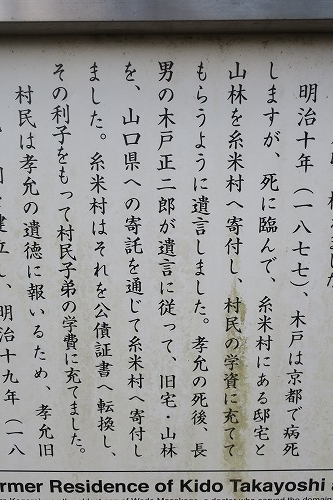 明治十年（一八七七）、木戸は京都で病死
しますが、死に臨んで、糸米村にある邸宅と
山林を糸米村へ寄付し、村民の学資に充てて
もらうように遺言しました。孝允の死後、長
男の木戸正二郎が遺言に従って、旧宅、山林
を、山口県への寄託を通じて糸米村へ寄付し
ました。糸米村はそれを公債証書へ転換し、
その利子をもって村民子弟の学費に充てました。
村民は孝允の遺徳に報いるため、孝允旧
建立し、明治十九年（一八
ormer Residence of Kido Takayoshi a